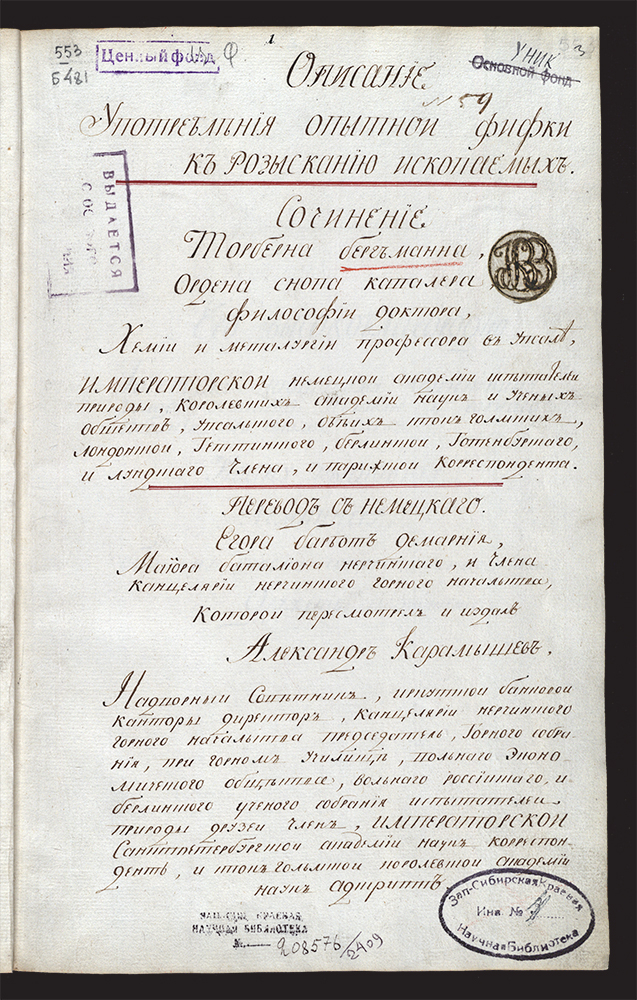 553
Б 481
Ценный фонд
1
Ф
УНИК
3
Основной фонд
Описаніе
№ 59
Употребленія опытной физики
къ розысканію ископаемыхъ.
ВЫДАЕТСЯ
Сочиненіе
Торберна бергъманна,
Ордена снопа каталера
философіи доктора,
Хеміи и металургіи профессора въ упсалѣ,
ИМПЕРАТОРСКОЙ немецкой академіи испытателей
природы, Королевскихъ академіи наукъ и ученыхъ
обществъ, упсальского, обѣихъ штокголмскихъ,
лондонской, Геттинского, берлинской, Готенбургского,
и лундского Члена, и парижской Корреспондента.
Переводъ съ немецкаго.
Егора барботъ демарнія,
Маіора баталіона нерчинского, и Члена
канцеляріи нерчинского горного начальства,
Которой пересмотрелъ и издалъ
Александръ Карамышевъ.
Надворный Советникъ, иркутской банковой
канторы директоръ, Канцеляріи нерчинского
горного начальства председатель, Горного собра-
нія, при горномъ Училищѣ, вольнаго Эконо-
мического общества, вольнаго россійскаго, и
берлинского ученого собранія испытателей
природы друзей член, ИМПЕРАТОРСКОЙ
Санктпетербургской академіи наукъ корреспон-
дентъ, и штокгольмской королевской академіи
наукъ
ЗАП-СИБ. КРАЕВАЯ
НАУЧНАЯ БИБЛИОТЕКА
№ 208576/2409
Зап-Сибирская Краевая
Инв. №
Научная Библиотека